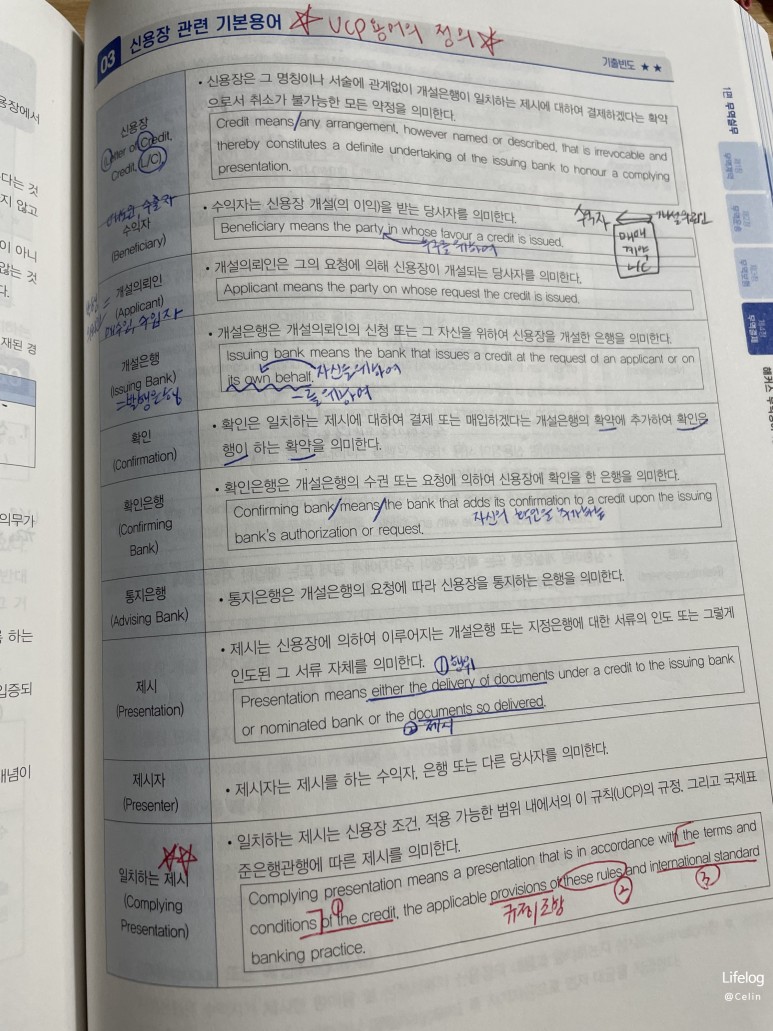 03 신용장 관련 기본용어 ☆ UCP용어의 정의☆
기출빈도 ★★
신용장
(Letter of Credit,
Credit, L/C)
• 신용장은 그 명칭이나 서술에 관계없이 개설은행이 일치하는 제시에 대하여 결제하겠다는 확약
으로서 취소가 불가능한 모든 약정을 의미한다.
Credit means/any arrangement, however named or described, that is irrevocable and
thereby constitutes a definite undertaking of the issuing bank to honour a complying
presentation.
수출자
수익자
(Beneficiary)
• 수익자는 신용장 개설(의 이익)을 받는 당사자를 의미한다.
Beneficiary means the party in whose favour a credit is issued.
누구를 위하여
수익자 개설의뢰인
매매
계약
L/C
= 개설의뢰인
(Applicant)
매수인, 수입자
• 개설의뢰인은 그의 요청에 의해 신용장이 개설되는 당사자를 의미한다.
Applicant means the party on whose request the credit is issued.
개설은행
(Issuing Bank)
=발행은행
• 개설은행은 개설의뢰인의 신청 또는 그 자신을 위하여 신용장을 개설한 은행을 의미한다.
Issuing bank means the bank that issues a credit at the request of an applicant or on
its own behalf. 자신을 위하여
~를 위하여
확인
(Confirmation)
• 확인은 일치하는 제시에 대하여 결제 또는 매입하겠다는 개설은행의 확약에 추가하여 확인은
행이 하는 확약을 의미한다.
확인은행
(Confirming
Bank)
• 확인은행은 개설은행의 수권 또는 요청에 의하여 신용장에 확인을 한 은행을 의미한다.
Confirming bank/means/the bank that adds its confirmation to a credit upon the issuing
자신의 확인을 추가하는
bank's authorization or request.
통지은행
(Advising Bank)
• 통지은행은 개설은행의 요청에 따라 신용장을 통지하는 은행을 의미한다.
제시
(Presentation)
• 제시는 신용장에 의하여 이루어지는 개설은행 또는 지정은행에 대한 서류의 인도 또는 그렇게
인도된 그 서류 자체를 의미한다. ① 행위
Presentation means either the delivery of documents under a credit to the issuing bank
or nominated bank or the documents so delivered.
② 제시
제시자
(Presenter)
• 제시자는 제시를 하는 수익자, 은행 또는 다른 당사자를 의미한다.
☆☆
일치하는 제시
(Complying
Presentation)
• 일치하는 제시는 신용장 조건, 적용 가능한 범위 내에서의 이 규칙(UCP)의 규정, 그리고 국제표
준은행관행에 따른 제시를 의미한다.
Complying presentation means a presentation that is in accordance with the terms and
①
conditions of the credit, the applicable provisions of these rules and international standard
규정이 조항 ② ③
banking practice.
1편 무역실무
무역계약
무역운송
무역보험
제4장
무역결제
용장에서
다는 것
지 않고
이 아니
않는 것
다.
재된 경
의무가
를 하는
입증되
개념이
Lifelog
@Celin